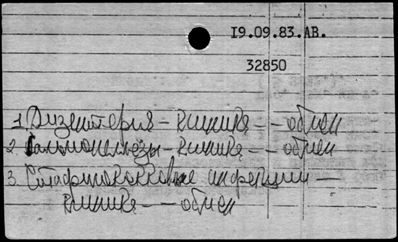 I9.09.83.АВ.
32850
1. Дизентерия – клиника – – обмен
2. Сальмонелезы – клиника – – обмен
3. Стафилококковые инфекции –
клиника – – обмен